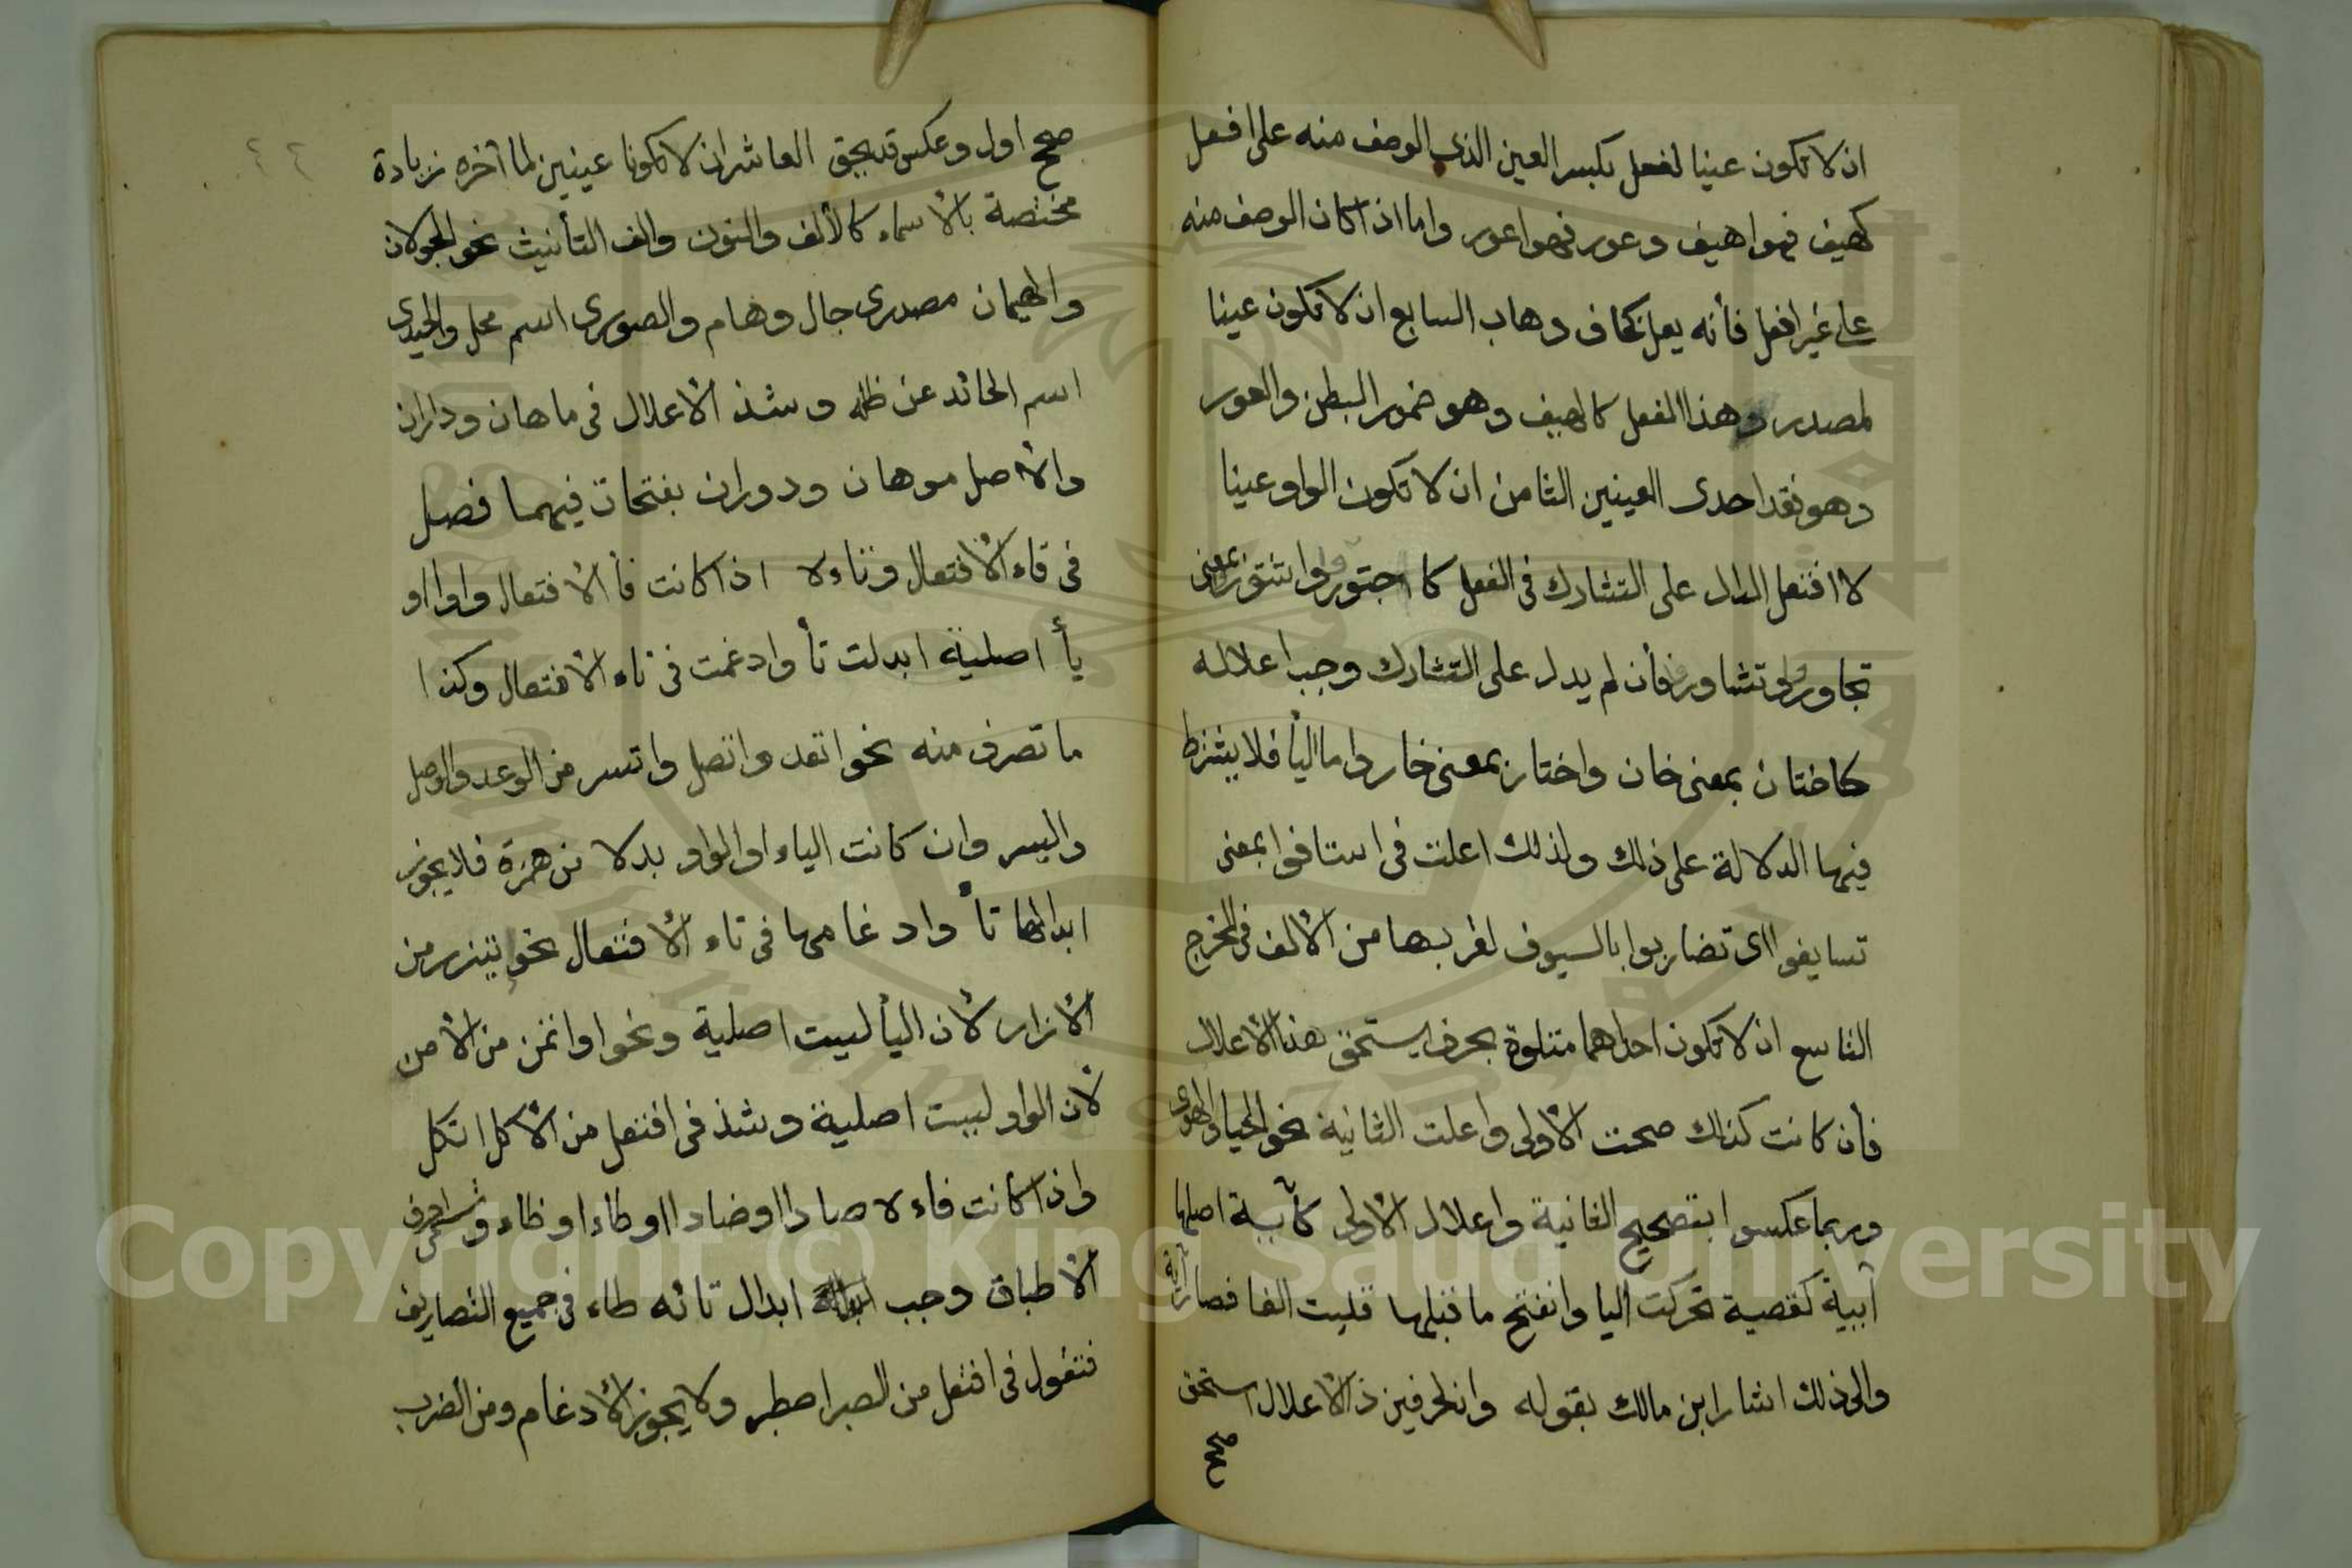 ان لا تكون عينا لفعل بكسر العين الذي الوصف منه على افعل
كهيف فهو اهيف وعور فهو اعور واما اذا كان الوصف منه
على غير افعل فأنه يعل كخاف وهاب السابع ان لا تكون عينا
لمصدر وهذا الفعل كالهيف وهو ضمور البطن والعور
وهو فقد احدى العينين الثامن ان لا تكون الواو عينا
لا افتعل الدال على التشارك في الفعل كا اجتوروا واشتوروا بمعنى
تجاوروا وتشاوروا فأن لم يدل على التشارك وجب اعلاله
كاختان بمعنى خان واختار بمعنى خار واما اليأ فلا يشترط
فيها الدلالة على ذلك ولذلك اعلت في استافوا بمعنى
تسايفوا اى تضاربوا بالسيوف لقربها من الألف في المخرج
التاسع ان لا تكون احداهما متلوة بحرف يستحق هذا الأعلال
فأن كانت كذلك صحت الأولى واعلت الثانية نحو الحيا والهوى
وربما عكسوا بتصحيح الثانية واعلال الأولى كآية اصلها
أيية كقصية تحركت اليا وانفتح ما قبلها قلبت الفا فصار آية
والى ذلك اشار ابن مالك بقوله وان لحرفين ذا الأعلال استحق
صحح
٤٤
صحح اول وعكس قد يحق العاشر ان لا تكونا عينين لما آخره زيادة
مختصة بالأسماء كالألف والنون والف التأنيث نحو الجولان
والهيمان مصدرى جال وهام والصورى اسم محل والحيدى
اسم الحائد عن ظله وشذ الأعلال في ماهان وداران
والأصل موهان ودوران بفتحات فيهما فصل
في فاء الأفتعال وتاءه اذا كانت فأ الأفتعال واوا او
يأ اصلية ابدلت تأ وادغمت في تاء الأفتعال وكذا
ما تصرف منه نحو اتعد واتصل واتسر من الوعد والوصل
واليسر وان كانت الياء او الواو بدلا من همزة فلا يجوز
ابدالها تأ وادغامها في تاء الأفتعال نحو ايتزر من
الأزار لأن اليأ ليست اصلية ونحو اوتمن من الأمن
لأن الواو ليست اصلية وشذ في افتعل من الأكل اتكل
واذا كانت فاءه صادا او ضادا او طاء او ظاء وتسمى احرف
الأطباق وجب ابدال تائه طاء في جميع التصاريف
فتقول في افتعل من الصبر اصطبر ولا يجوز الأدغام ومن الضرب
Copyright © King Saud University